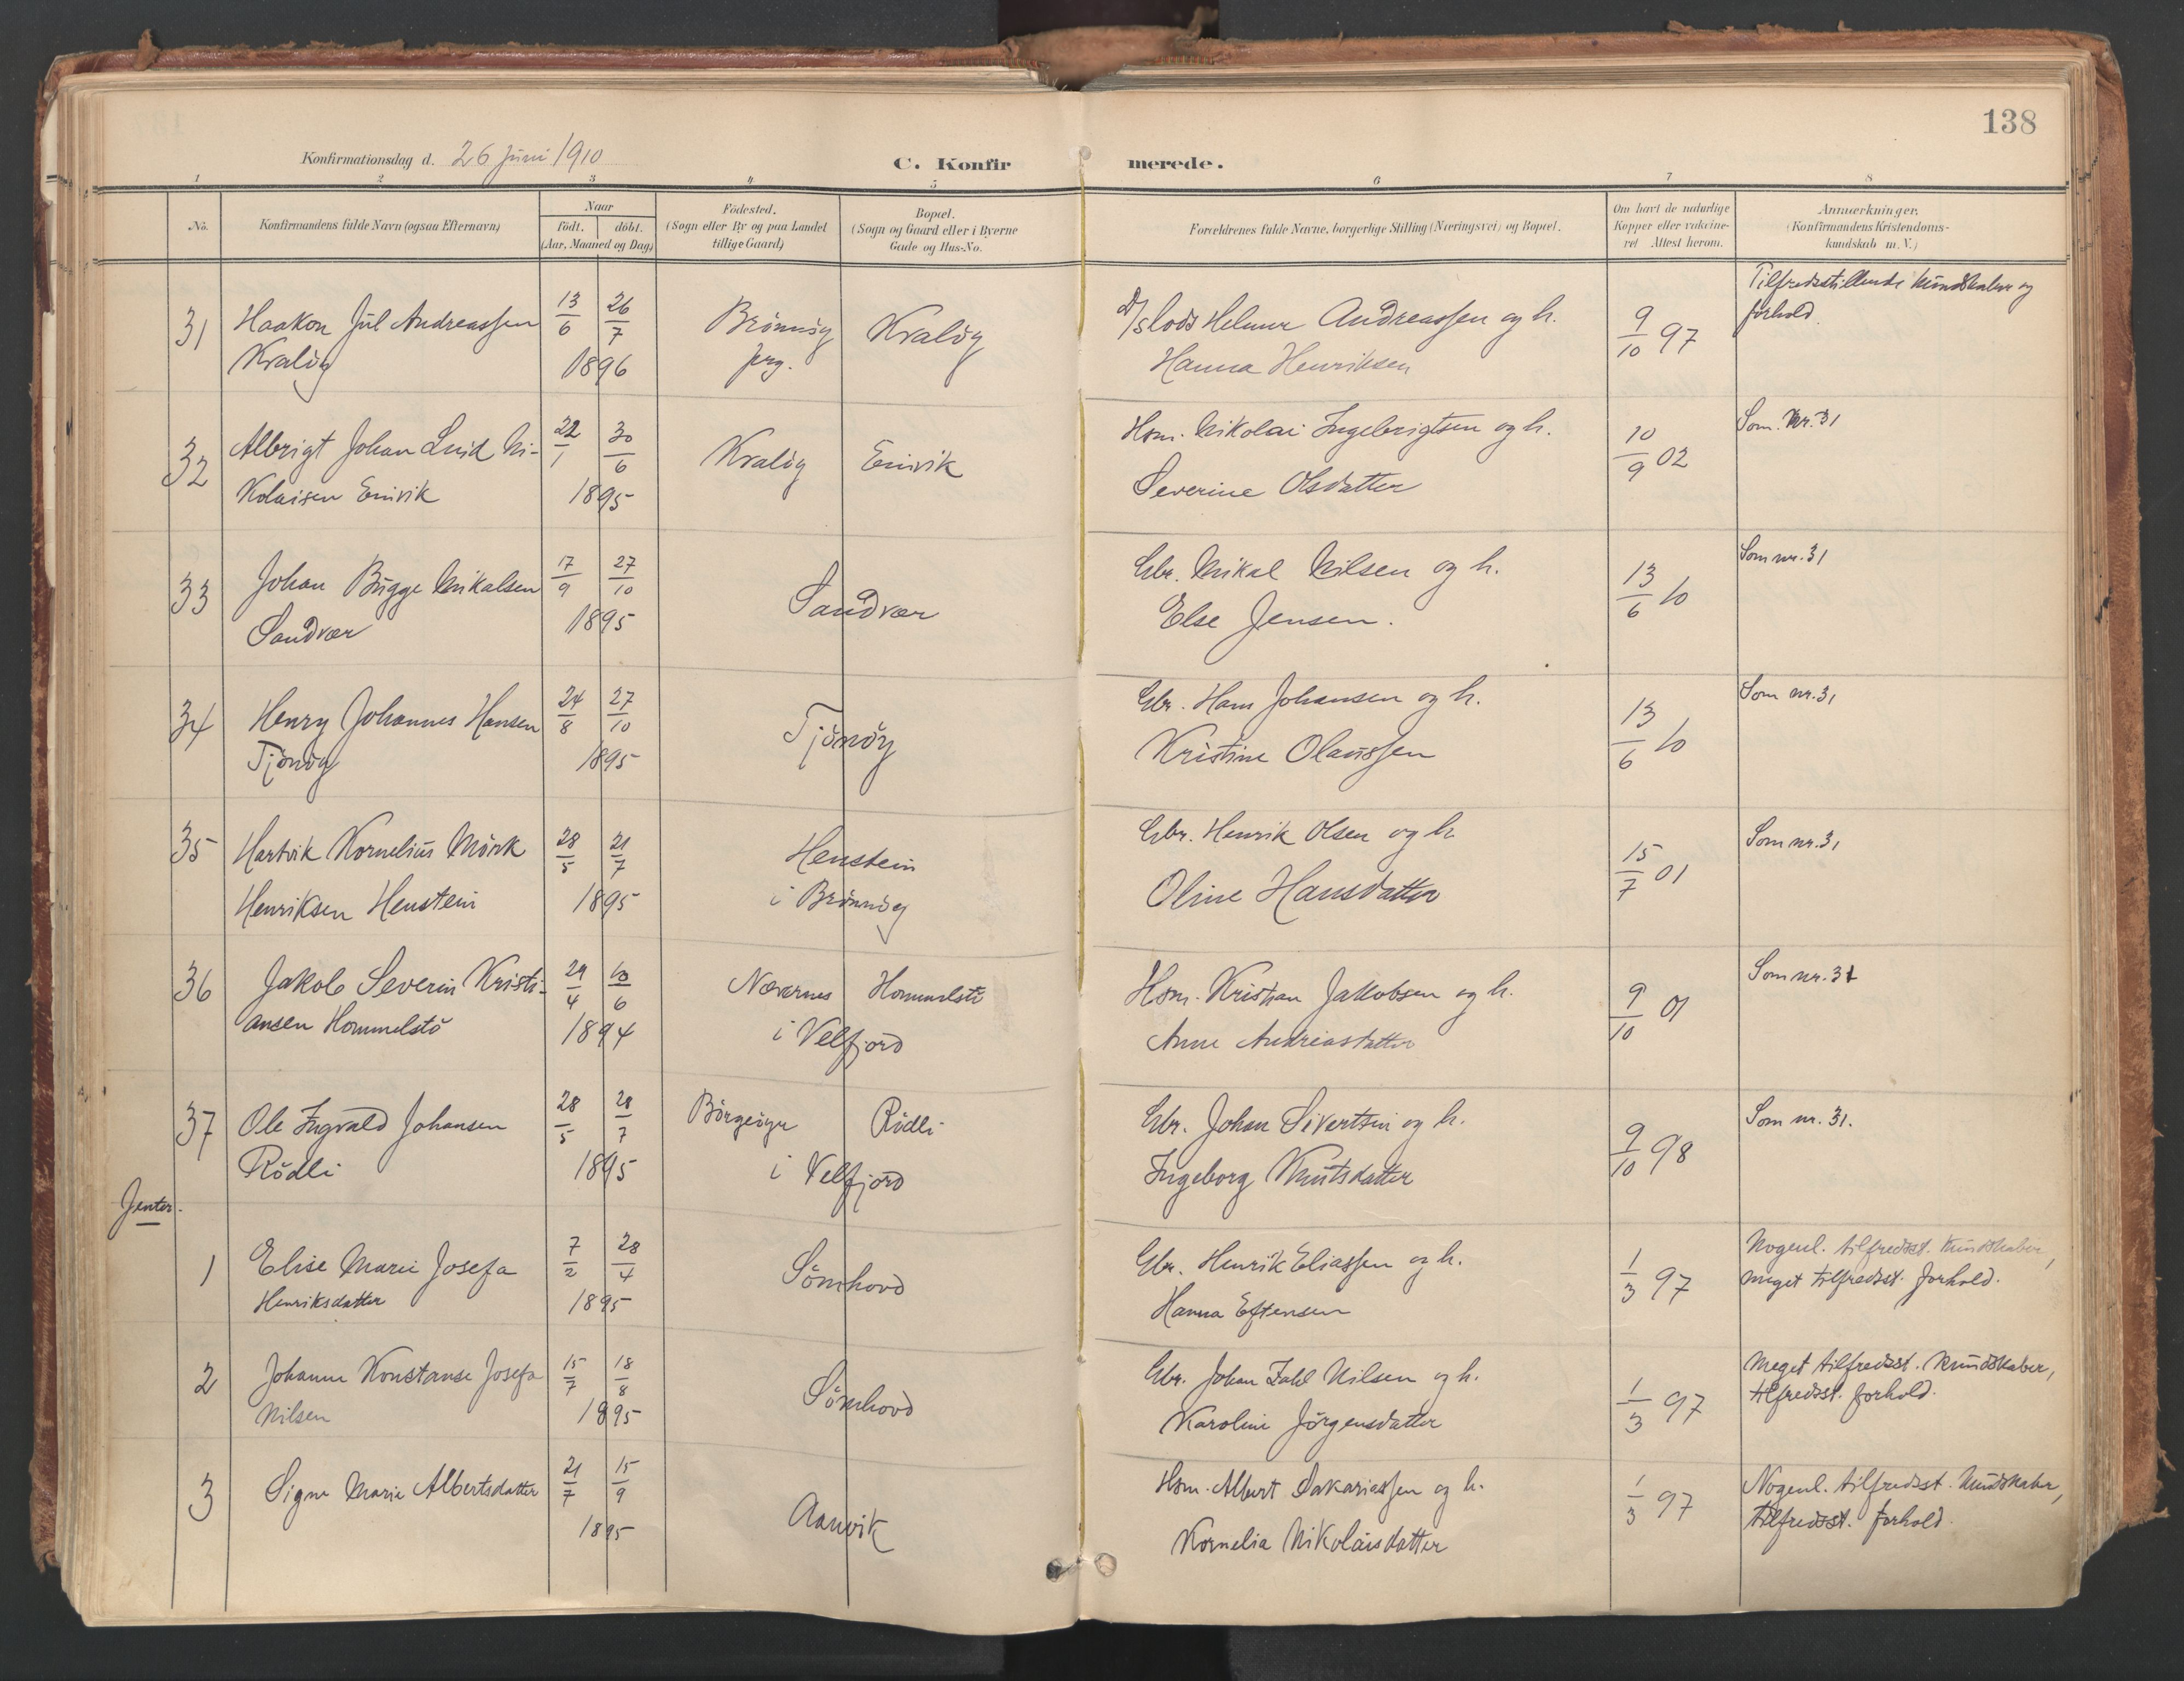 138
Konfirmationsdag d. 26 Juni 1910
C. Konfirmerede.
1 2 3 4 5 6 7 8
No.
Konfirmandens fulde Navn (ogsaa Efternavn)
Naar
født. døbt.
(Aar, Maaned og Dag)
Födested.
(Sogn eller By og paa Landet
tillige Gaard)
Bopæl.
(Sogn og Gaard eller i Byerne
Gade og Hus-No.
Forældrenes fulde Navne, borgerlige Stilling (Næringsvei) og Bopæl.
Om havt de naturlige
Kopper eller vakcine-
ret Attest herom.
Anmærkninger.
(Konfirmandens Kristendoms-
kundskab m. V.)
31 Haakon Jul Andreassen 13/6 26/7 Brönnöy Kralög D/slods Helmer Andreassen og h. 9/10 97 Tilfredsstillende kundskaber og
Kralög 1896 prg. Hanna Henriksen forhold
32 Albrigt Johan Luid Ni- 22/1 30/6 Kralög Emvik Hsm. Nikolai Ingebrigtsen og h. 10/9 02 Som Nr. 31
kolaisen Emvik 1895 Severine Olsdatter
33 Johan Bugge Mikalsen 17/9 27/10 Sandvær Gbr. Mikal Nilsen og h. 13/6 10 Som nr. 31
Sandvær 1895 Else Jensen.
34 Henry Johannes Hansen 24/8 27/10 Tjönöy Gbr. Hans Johansen og h. 13/6 10 Som nr. 31
Tjönöy 1895 Kristine Olaussen
35 Hartvik Kornelius Mörk 28/5 21/7 Henstein Gbr. Henrik Olsen og h. 15/7 01 Som nr. 31
Henriksen Henstein 1895 i Brönnöy Oline Hansdatter
36 Jakob Severin Kristi- 29/4 10/6 Nævernes Hommelstö Hsm. Kristian Jakobsen og h. 9/10 01 Som nr. 31
ansen Hommelstö 1894 i Velfjord Anne Andreasdatter
37 Ole Ingvald Johansen 28/5 28/7 Börgeöyr Rödli Gbr. Johan Sivertsen og h. 9/10 98 Som nr. 31.
Rödli 1895 i Velfjord Ingeborg Knutsdatter
Jenter.
1 Elise Marie Josefa 7/2 28/4 Sömhovd Gbr. Henrik Eliassen og h. 1/3 97 Nogenl. tilfredsst. kundskaber,
Henriksdatter 1895 Hanna Eftensen meget tilfredsst. forhold.
2 Johanne Konstanse Josefa 15/7 18/8 Sömhovd Gbr. Johan Zahl Nilsen og h. 1/3 97 Meget tilfredsst. kundskaber,
Nilsen 1895 Karoline Jörgensdatter tilfredsst. forhold.
3 Signe Marie Albertsdatter 21/7 15/9 Aanvik Hsm. Albert Sakariassen og h. 1/3 97 Nogenl. tilfredsst. kundskaber,
1895 Kornelia Nikolaisdatter tilfredsst. forhold.